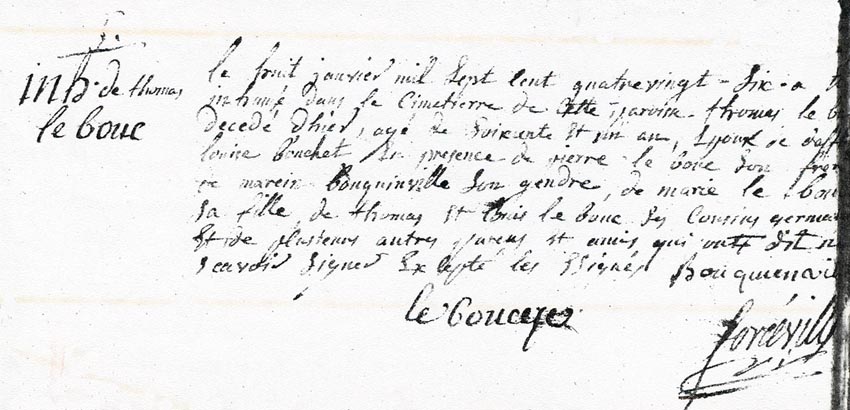 inh. de thomas
le bouc
le huit janvier mil sept cent quatrevingt - six - a
inhumé dans le Cimetierre de cette paroisse thomas le
decedé d'hier, agé de soixante et un an, Epoux de
louise bouchet En presence de pierre le bouc son frere
de marein bouquinville son gendre, de marie le bouc
sa fille, de thomas et louis le bouc ses Cousins germa
Et de plusieurs autres parens et amis qui ont dit n
scavoir signer Excepté les ssignés bouquienvi
le bouc